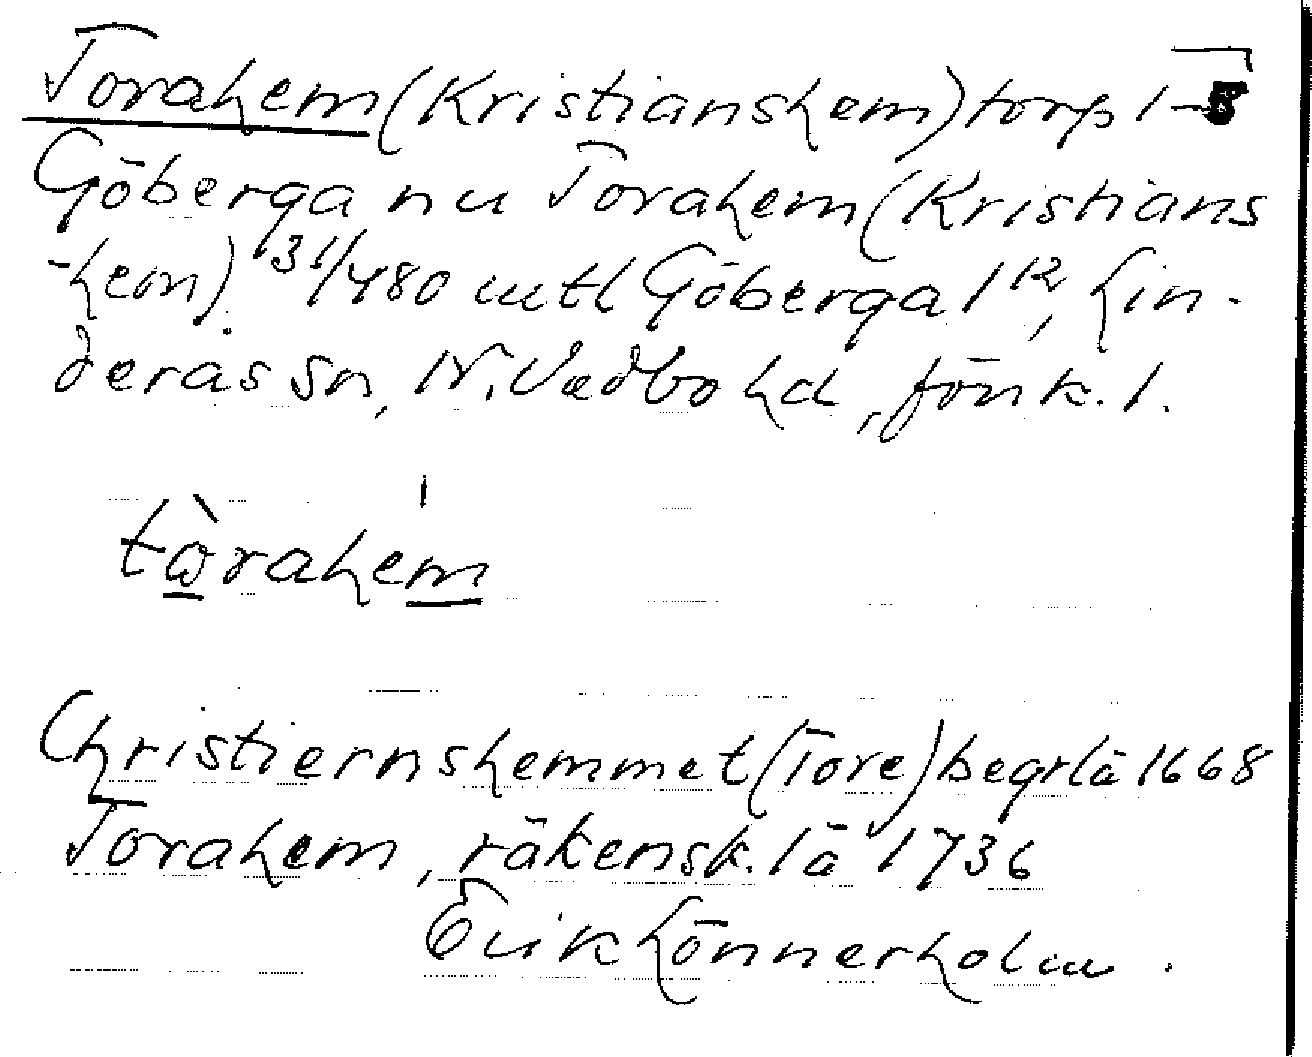 Torahem (Kristianshem) torp 1-5
Göberga nu Torahem (Kristians
-hem) 31/480 mtl Göberga 1¹², Lin-
deräs sn, N. Vedbo hd, Jönk. l.
tàrahem
Christiernshemmet (Tore) begrlä 1668
Torahem, räkensk. lä 1736
Erik Lönnerholm.